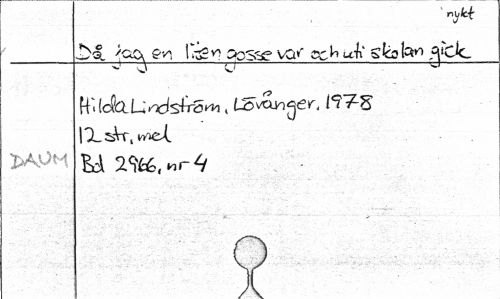 nykt
Då jag en liten gosse var och uti skolan gick
Hilda Lindström, Lövånger, 1978
12 str, mel
DAUM Bd 2966, nr 4